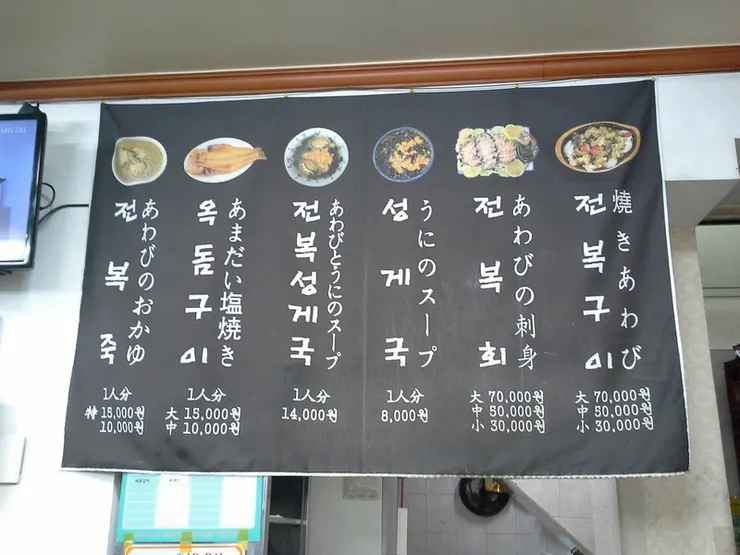 전복죽
あわびのおかゆ
1人分
特 15,000원
10,000원
옥돔구이
あまだい塩焼き
1人分
大 15,000원
中 10,000원
전복성게국
あわびとうにのスープ
1人分
14,000원
성게국
うにのスープ
1人分
8,000원
전복회
あわびの刺身
大 70,000원
中 50,000원
小 30,000원
전복구이
焼きあわび
大 70,000원
中 50,000원
小 30,000원